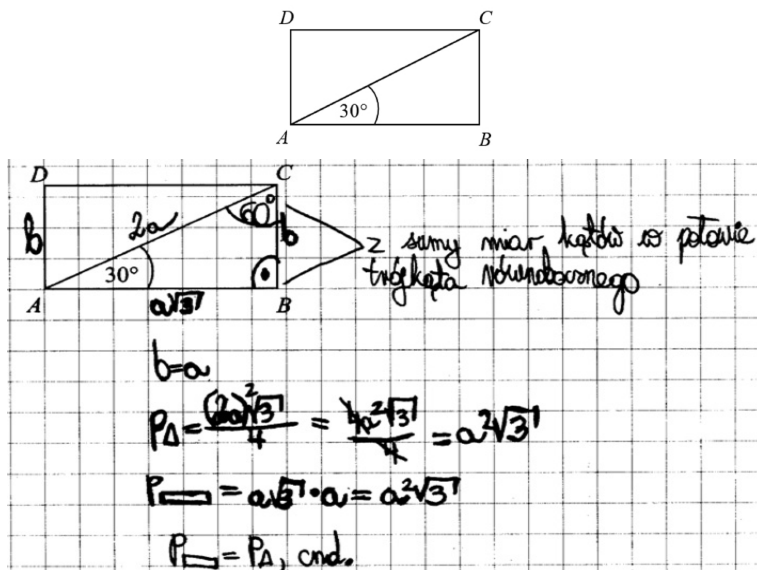 D C
30°
A B
D C
2a 60°
b b
30°
A a√3 B
z sumy miar kątów w połowie
trójkąta równobocznego
b=a
P△ = (2a)²√3/4 = 4a²√3/4 = a²√3
P▭ = a√3 · a = a²√3
P▭ = P△, cnd.